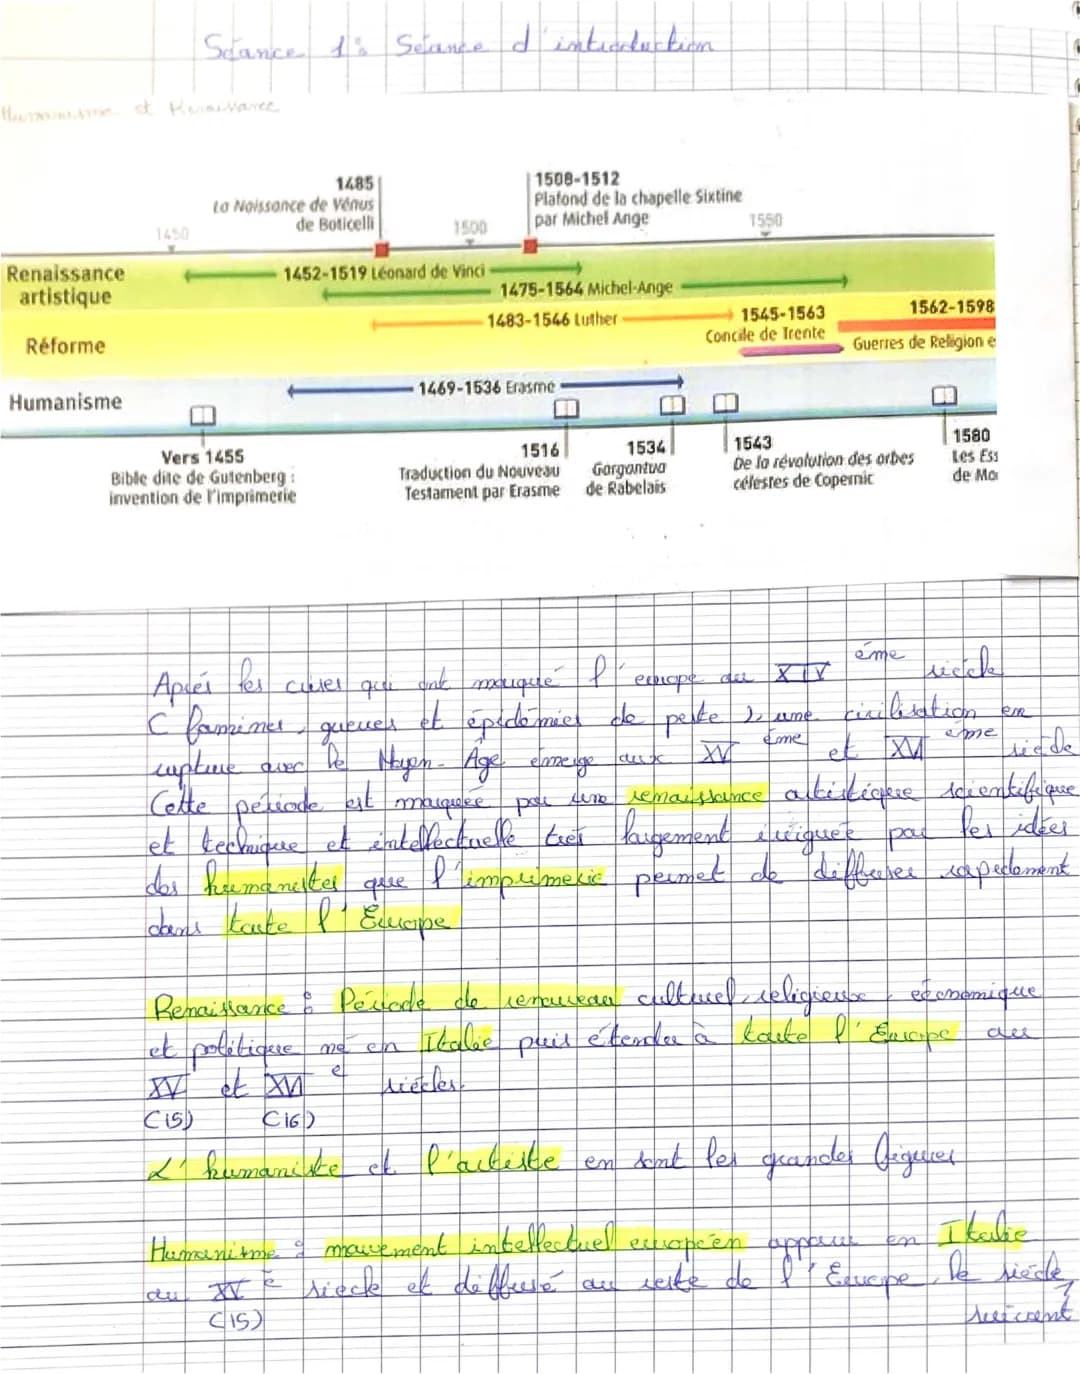 Séance 1: Séance d'introduction
Humanisme et Renaissance
1485
La Naissance de Vénus
de Boticelli
1508-1512
Plafond de la chapelle Sixtine
par Michel Ange
1450
1500
1550
Renaissance
artistique
1452-1519 Léonard de Vinci
1475-1564 Michel-Ange
Réforme
1483-1546 Luther
1545-1563
Concile de Trente
1562-1598
Guerres de Religion e
Humanisme
1469-1536 Erasme
Vers 1455
Bible dite de Gutenberg :
invention de l'imprimerie
1516
Traduction du Nouveau
Testament par Erasme
1534
Gargantua
de Rabelais
1543
De la révolution des orbes
célestes de Copernic
1580
Les Ess
de Mo
Aprés les crises qui ont marqué l'europe au XIV éme siècle
( famines, guerres et épidémies de peste ), une civilisation en
rupture avec le Moyen-Âge émerge aux XV éme et XVI éme siècle
Cette période est marquée par une renaissance artistique scientifique
et technique et intellectuelle très largement irriguée par les idées
des humanistes que l'imprimerie permet de diffuser rapidement
dans toute l'Europe
Renaissance : Période de renouveau culturel, religieuse, économique
et politique né en Italie puis étendu à toute l'Europe au
XV et XVI e siècles.
(15) (16)
L'humaniste et l'artiste en sont les grandes figures
Humanisme : mouvement intellectuel européen apparu en Italie
au XV e siècle et diffusé au reste de l'Europe le siècle,
(15) suivant